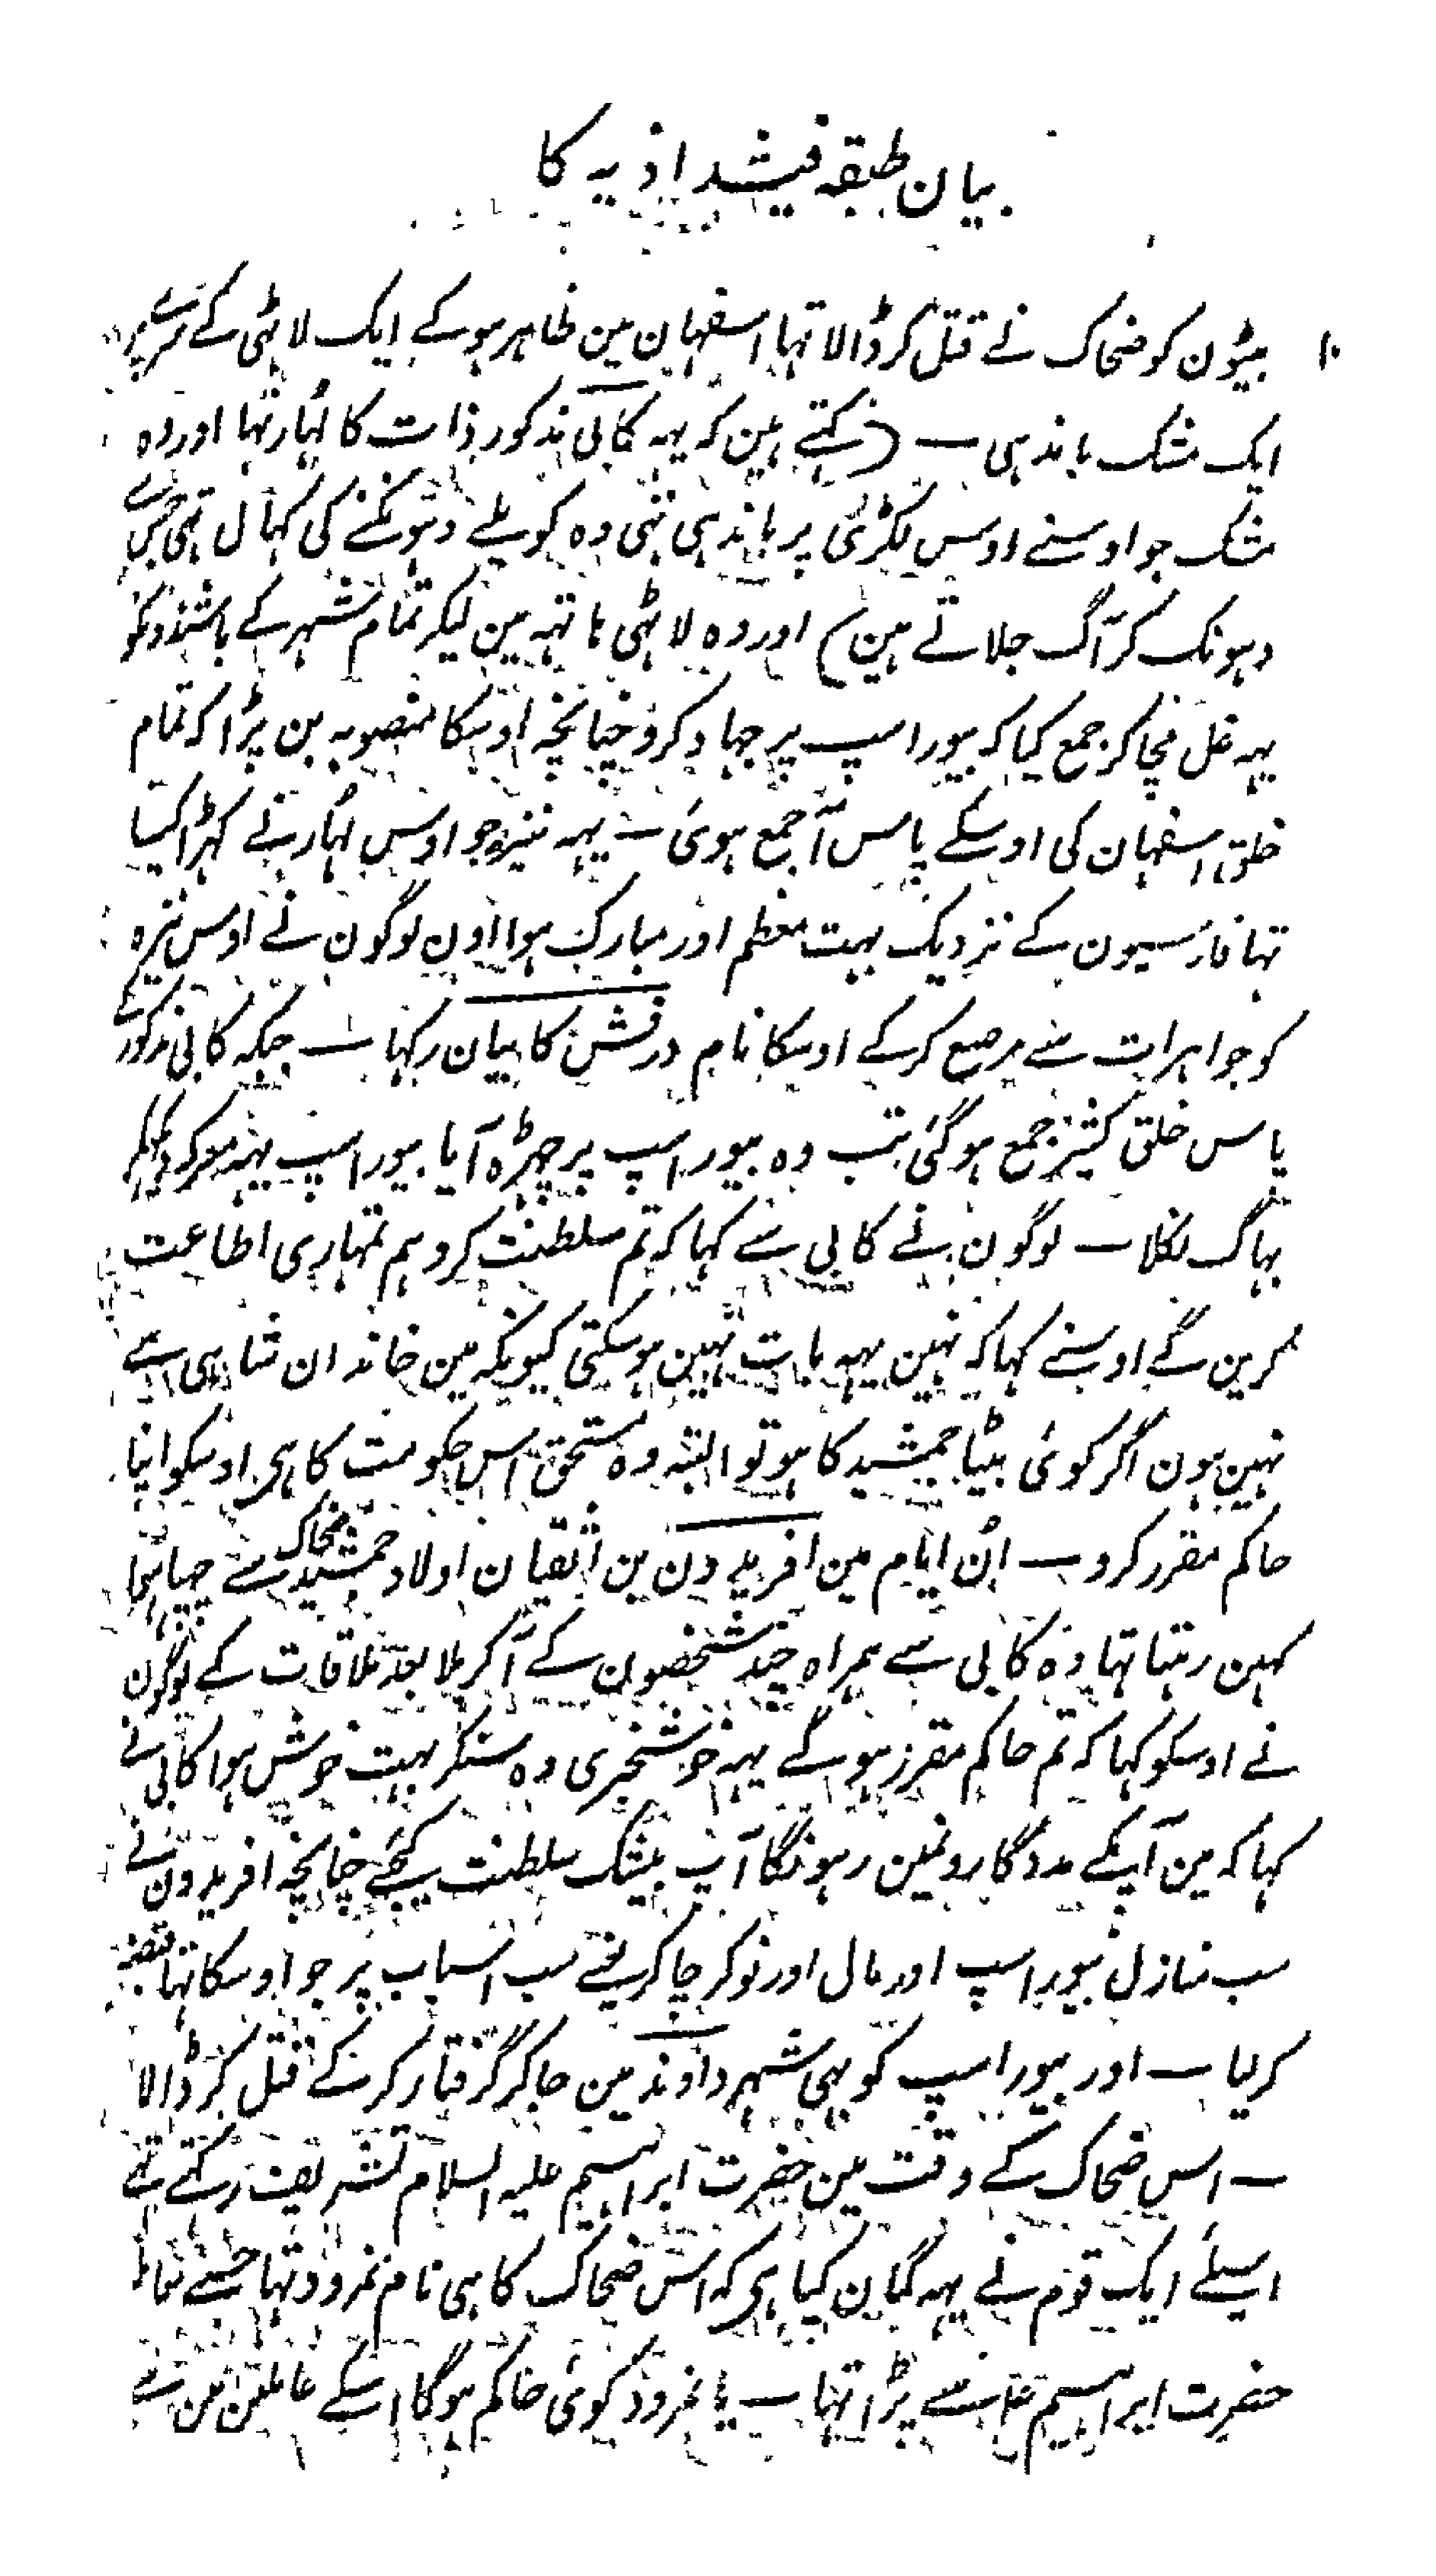 بیان طبقہ فیشدادیہ کا
۱۰ بیٹون کو ضحاک نے قتل کر ڈالا تہا اسفہان مین ظاہر ہو کے ایک لاٹہی کے سرے پر
ایک مشک باندہی ــ (کہتے ہین کہ یہہ کابی مذکور ذات کا لہار تہا اور وہ
مشک جو اوسنے اوس لکڑی پر باندہی تہی وہ کویلے دہونکنے کی کہال تہی جس سے
دہونک کر آگ جلاتے ہین) اور وہ لاٹہی ہاتہہ مین لیکر تمام شہر کے باشندونکو
یہہ غل مچا کر جمع کیا کہ بیوراسپ پر جہاد کرو چنانچہ اوسکا منصوبہ بن پڑا کہ تمام
خلق اسفہان کی اوسکے پاس آ جمع ہوئی ــ یہہ نیزہ جو اوس لہار نے کہڑا کیا
تہا فارسیون کے نزدیک بہت معظم اور مبارک ہوا اون لوگون نے اوس نیزہ
کو جواہرات سے مرصع کر کے اوسکا نام درفش کابیان رکہا ــ جبکہ کابی مذکور کے
پاس خلق کثیر جمع ہو گئی تب وہ بیوراسپ پر چڑہ آیا بیوراسپ یہہ معرکہ دیکہکر
بہاگ نکلا ــ لوگون نے کابی سے کہا کہ تم سلطنت کرو ہم تمہاری اطاعت
کرین گے اوسنے کہا کہ نہین یہہ بات نہین ہو سکتی کیونکہ مین خاندان شاہی سے
نہین ہون اگر کوئی بیٹا جمشید کا ہو تو البتہ وہ مستحق اس حکومت کا ہی اوسکو اپنا
حاکم مقرر کرو ــ ان ایام مین افریدون بن اثفیان اولاد جمشید ضحاک سے چہپا ہوا
کہین رہتا تہا وہ کابی سے ہمراہ چند شخصون کے آ کر ملا بعد ملاقات کے لوگون
نے اوسکو کہا کہ تم حاکم مقرر ہو گے یہہ خوشخبری وہ سنکر بہت خوش ہوا کابی نے
کہا کہ مین آپکے مددگارونمین رہونگا آپ بیشک سلطنت کیجئے چنانچہ افریدون نے
سب منازل بیوراسپ اور مال اور نوکر چاکر یعنے سب اسباب پر جو اوسکا تہا قبضہ
کر لیا ــ اور بیوراسپ کو بہی شہر داوند مین جا کر گرفتار کر کے قتل کر ڈالا
ــ اس ضحاک کے وقت مین حضرت ابراہیم علیہ السلام تشریف رکہتے تہے
اسیلئے ایک قوم نے یہہ گمان کیا ہی کہ اس ضحاک کا ہی نام نمرود تہا جسے معاملہ
حضرت ابراہیم ع سے پڑا تہا ــ یا نمرود کوئی حاکم ہوگا اسکے عاملین مین سے